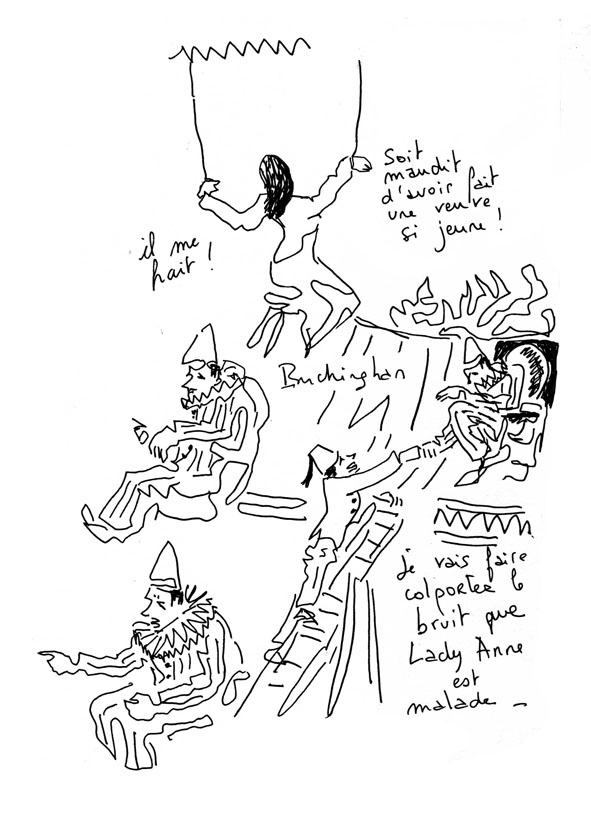 Soit
maudit
d'avoir fait
une veuve
si jeune !
il me
hait !
Buchinghan
je vais faire
colporter le
bruit que
Lady Anne
est
malade _